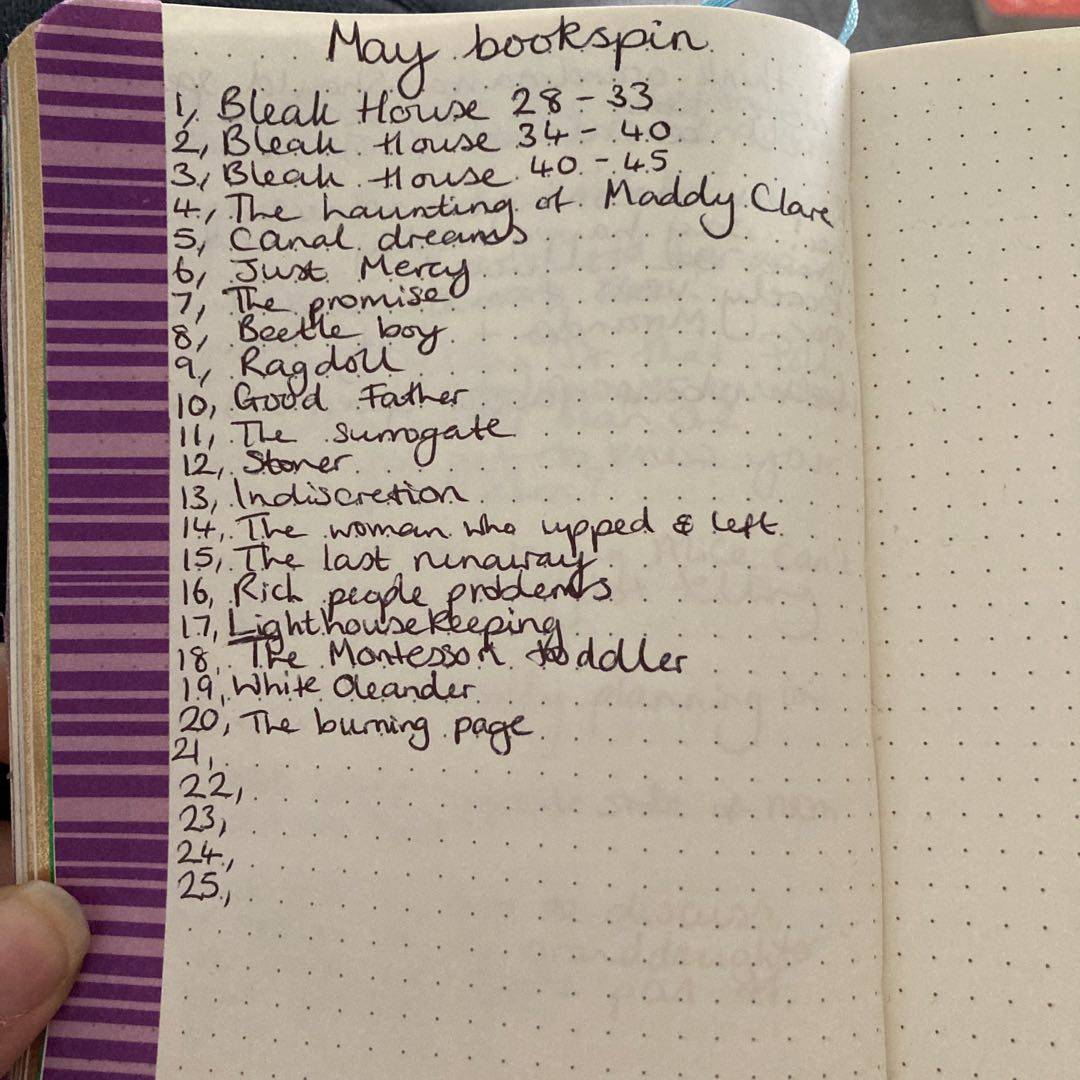 May bookspin
1, Bleak House 28 - 33
2, Bleak House 34 - 40
3, Bleak House 40 - 45
4, The haunting of Maddy Clare
5, Canal dreams
6, Just Mercy
7, The promise
8, Beetle boy
9, Ragdoll
10, Good Father
11, The surrogate
12, Stoner
13, Indiscretion
14, The woman who upped & left
15, The last runaway
16, Rich people problems
17, Lighthousekeeping
18, The Montessori toddler
19, White Oleander
20, The burning page
21,
22,
23,
24,
25,